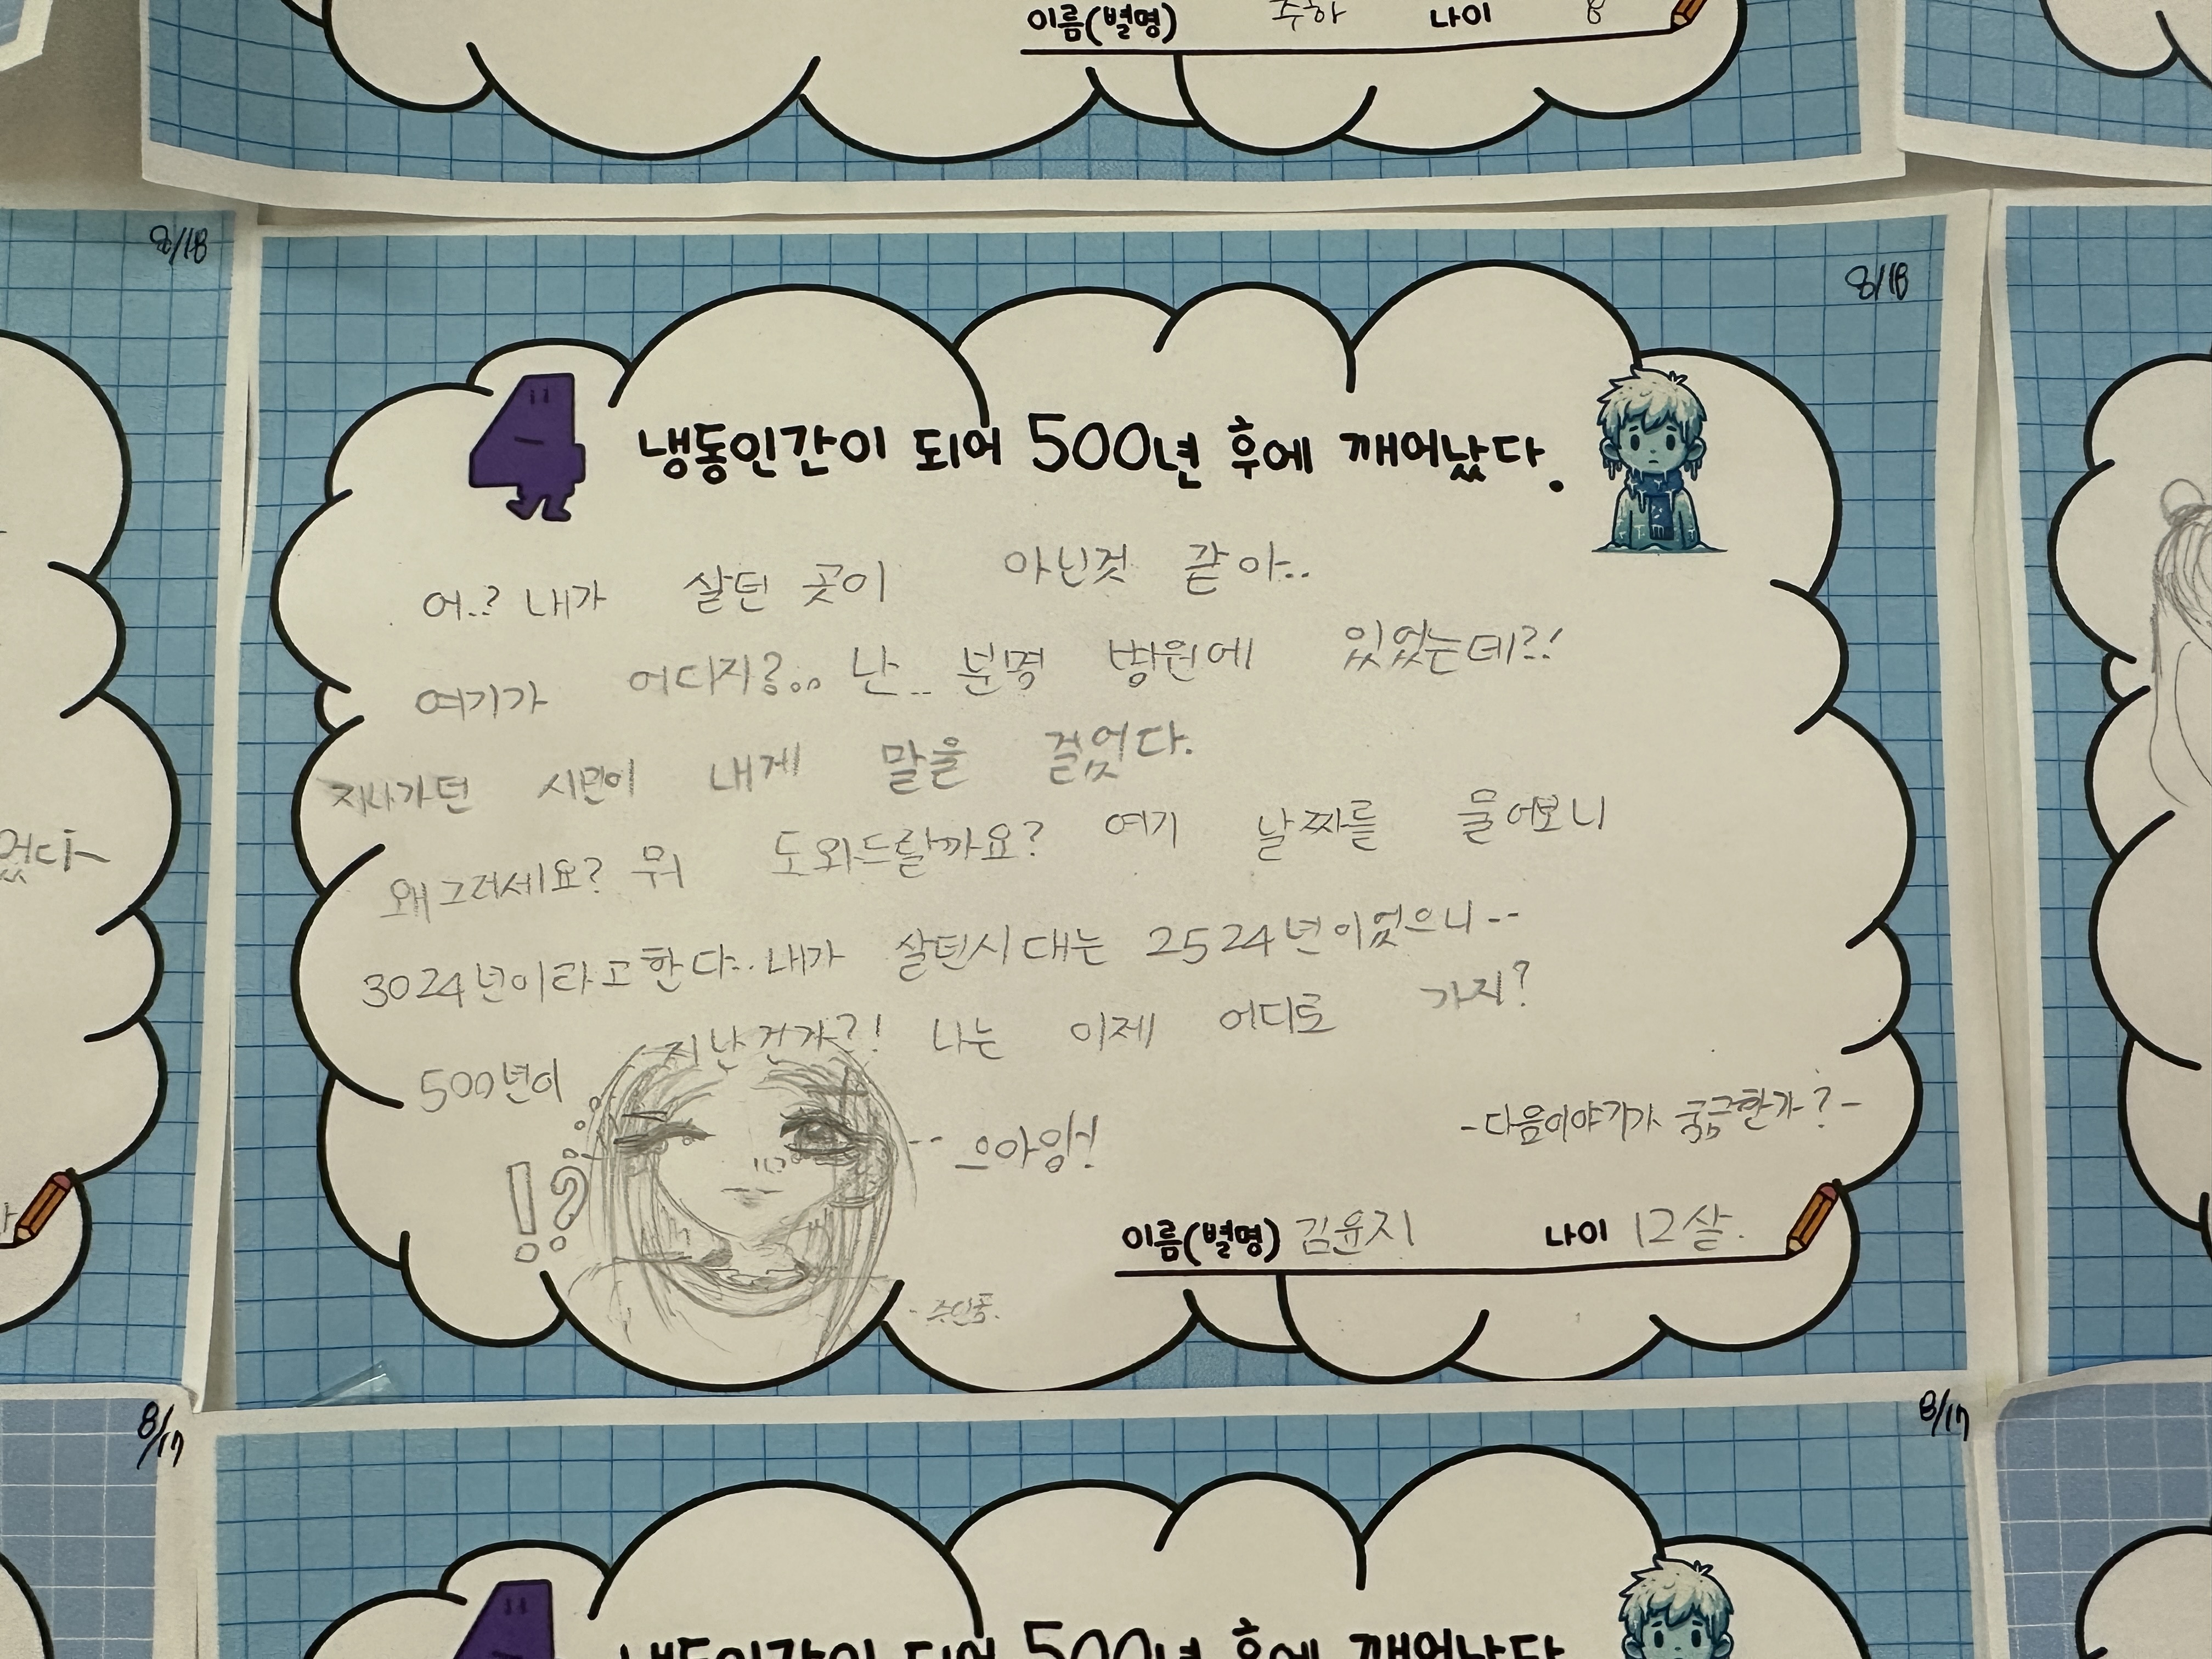 이름(별명) 주하 나이 8
8/18
8/18
냉동인간이 되어 500년 후에 깨어났다.
어..? 내가 살던 곳이 아닌것 같아..
여기가 어디지?.. 난.. 분명 병원에 있었는데?!
지나가던 시민이 내게 말을 걸었다.
왜그러세요? 뭐 도와드랄까요? 여기 날짜를 물어보니
3024년이라고한다..내가 살던시대는 2524년이었으니--
500년이 지난건가?! 나는 이제 어디로 가지?
-다음이야기가 궁금한가?-
-- 으아앙!
!?
이름(별명) 김윤지 나이 12살.
-주인공.
8/17
8/17
냉동인간이 되어 500년 후에 깨어났다.